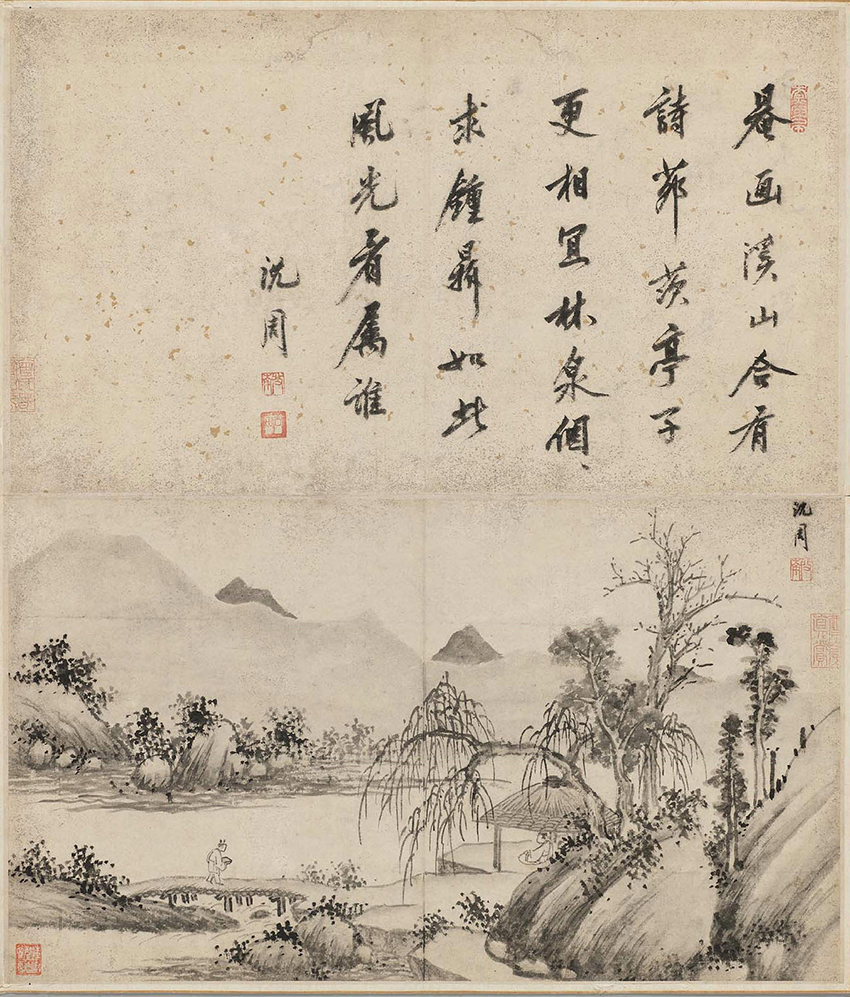 罨画溪山合有
詩茆茨亭子
更相冝林泉個、
求鍾鼎如此
風光看属誰
沈周
沈周